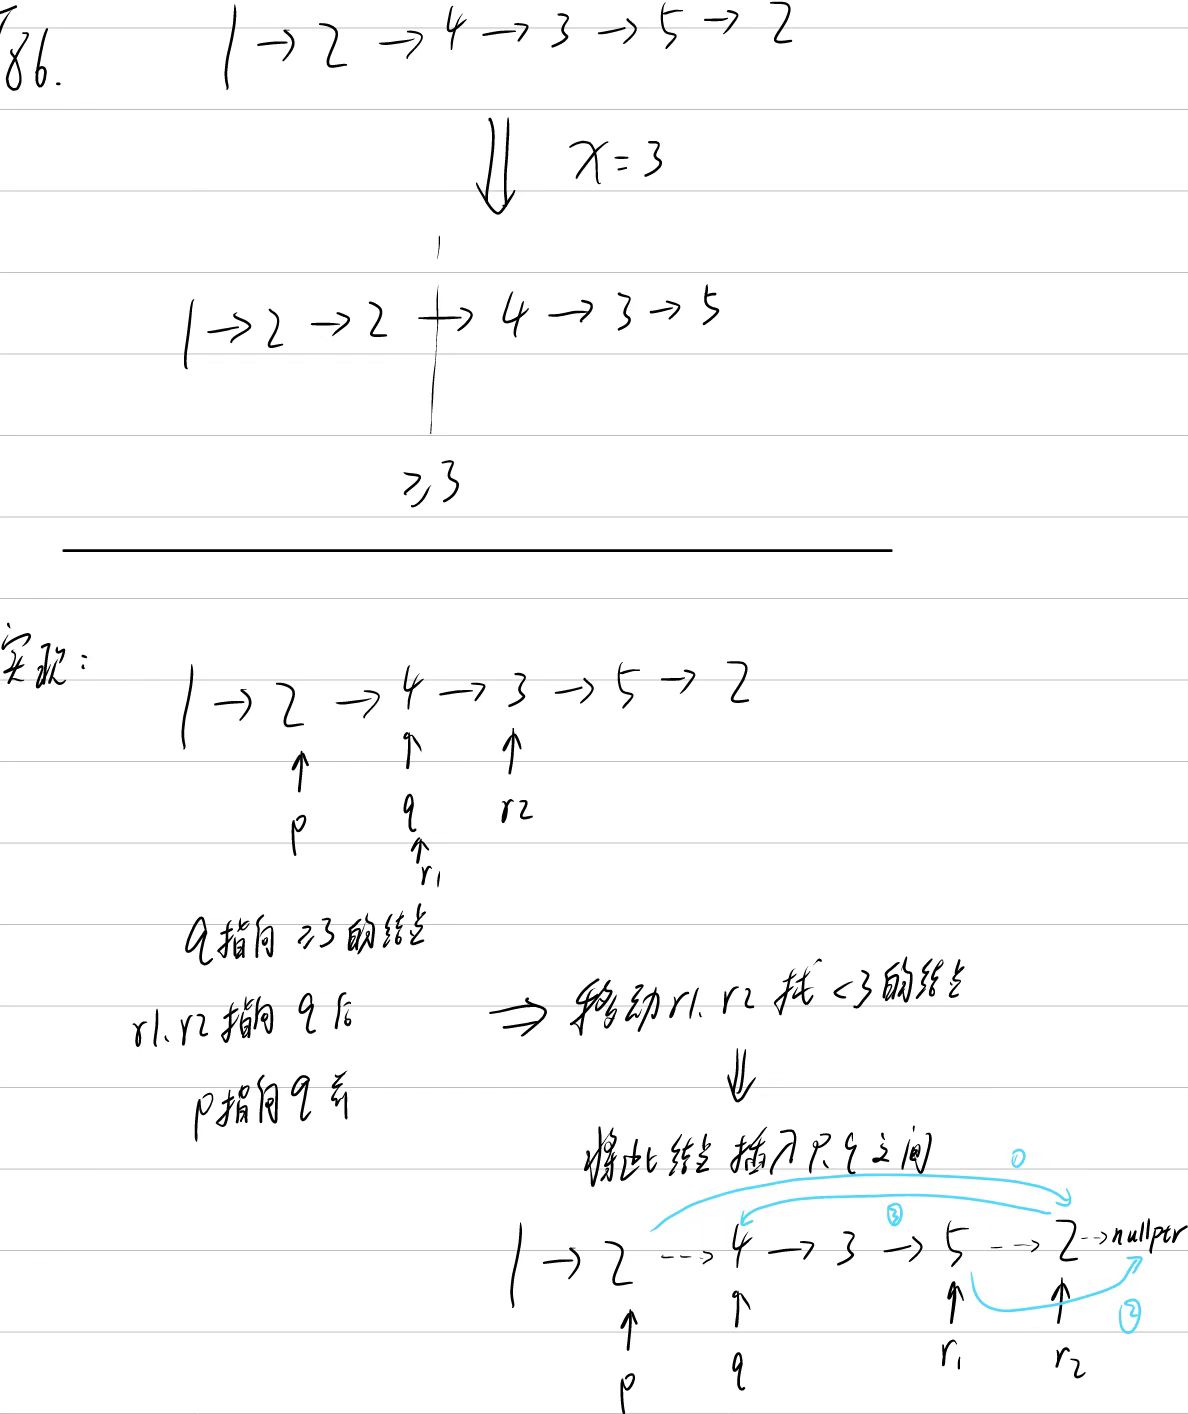 T86. 1→2→4→3→5→2
⇓ x=3
1→2→2→4→3→5
≥3
实现:
1→2→4→3→5→2
↑ ↑ ↑
p q r2
↑
r1
q指向 ≥3的结点
r1、r2指向 q后 ⇒ 移动r1、r2 找<3的结点
p指向q前 ⇓
将此结点插入p、q之间
① ③
1→2⇢4→3→5⇢2⇢nullptr
↑ ↑ ↑ ↑ ②
p q r1 r2